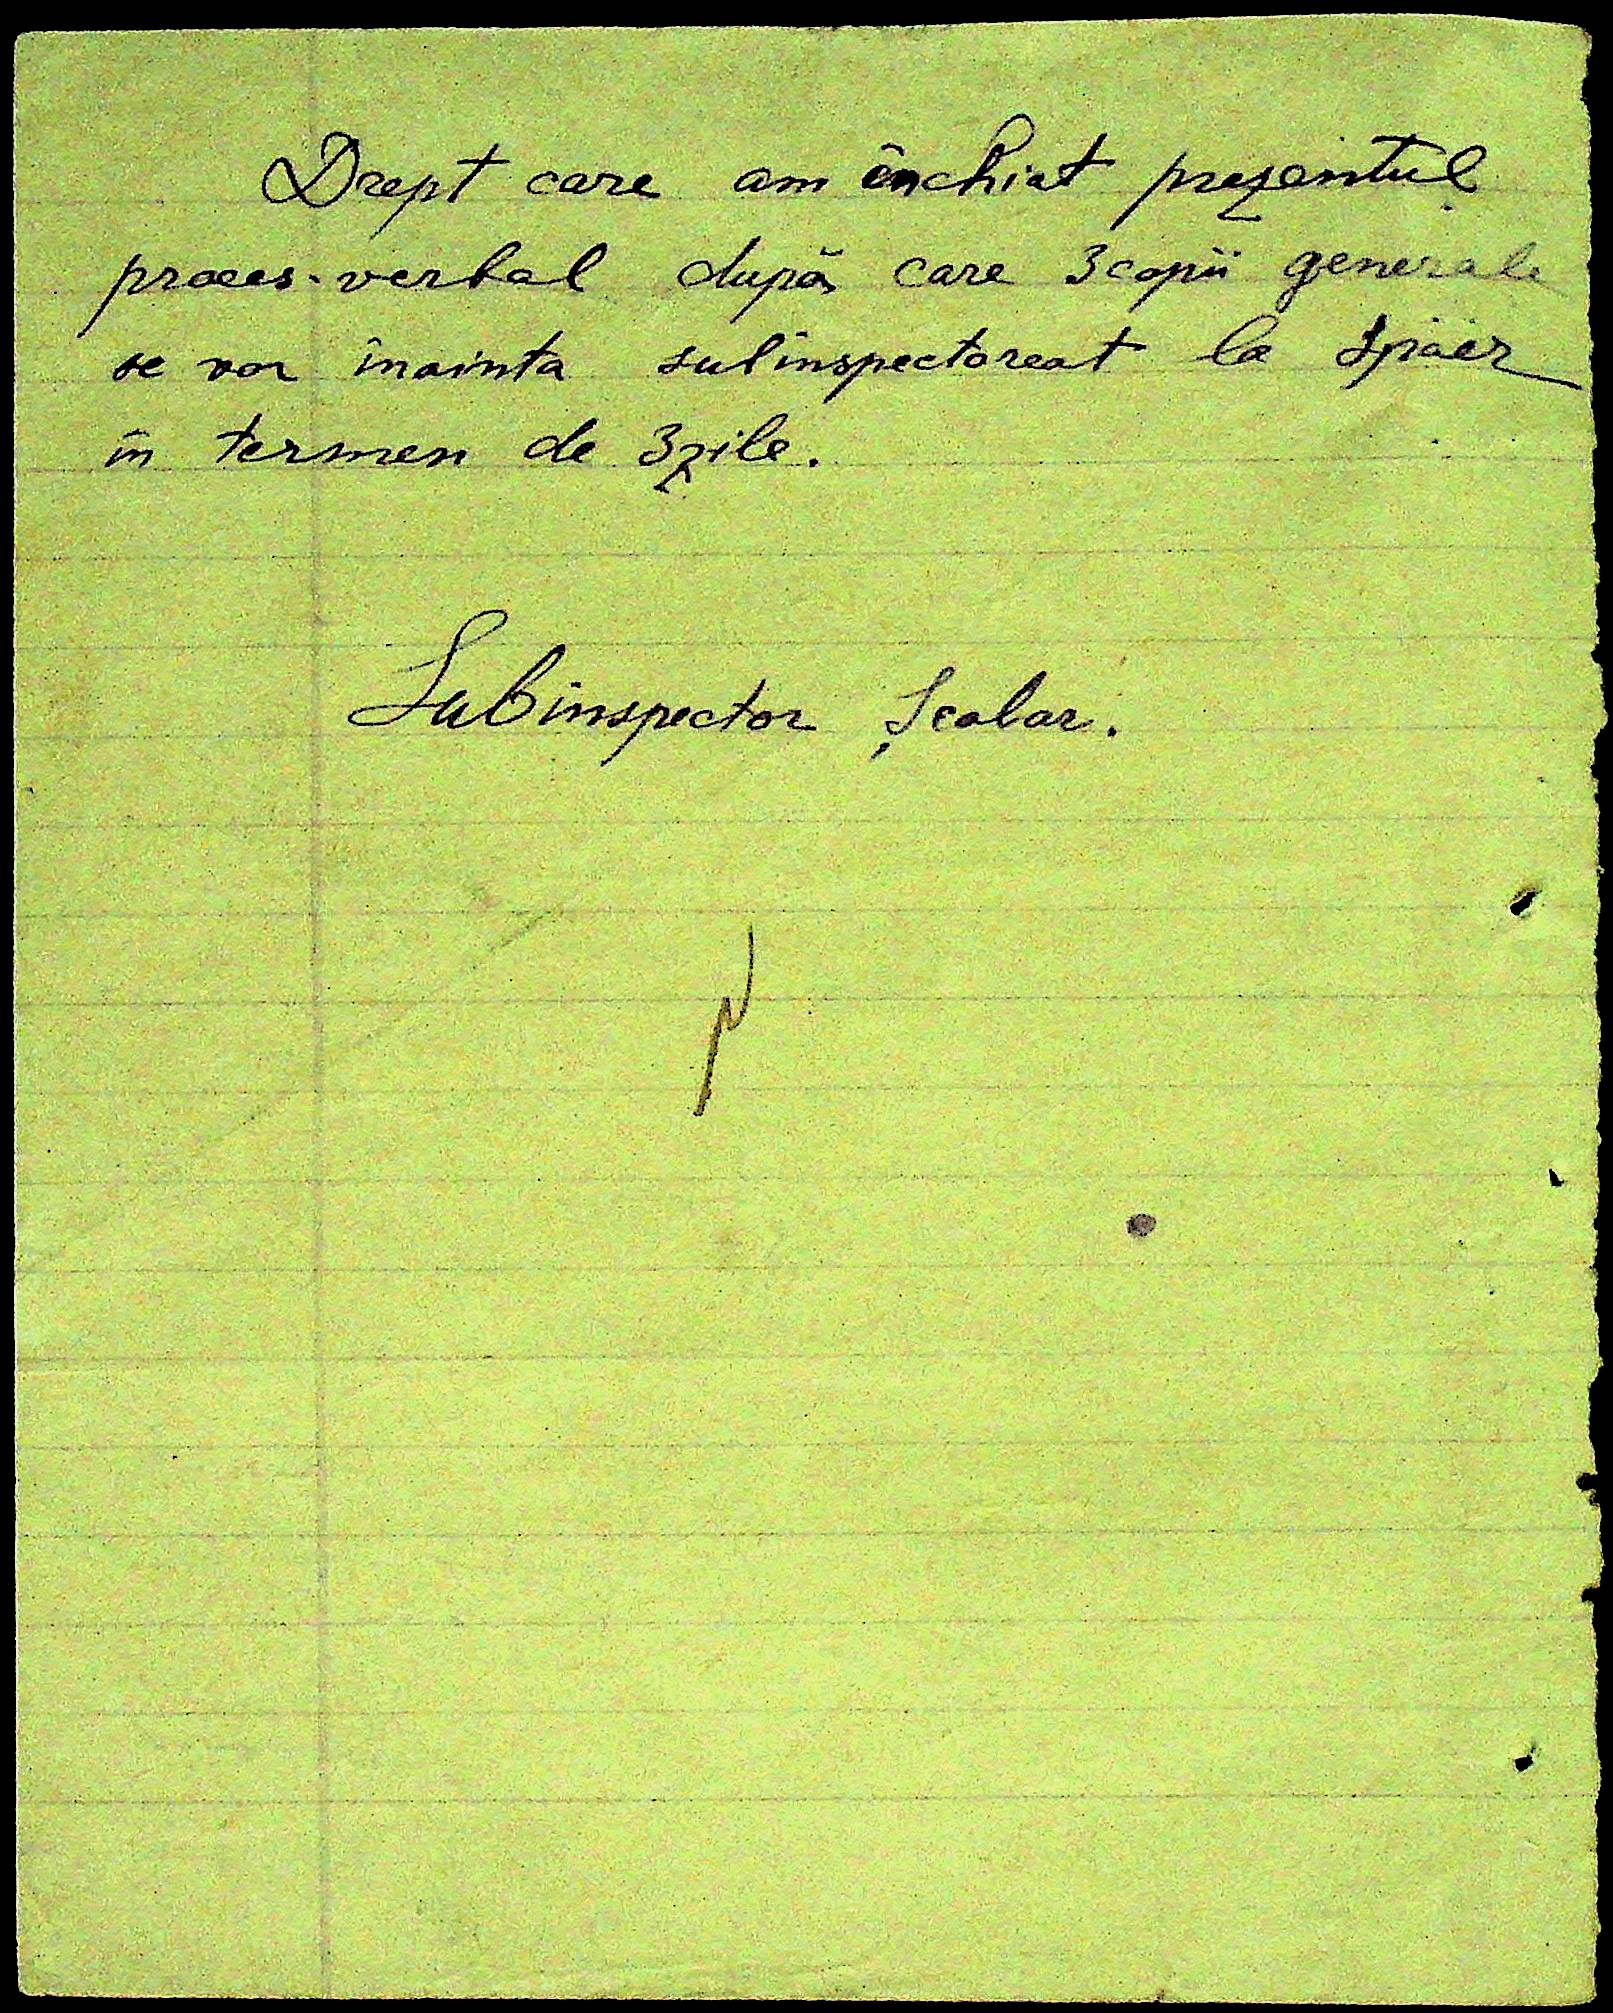 Drept care am închiat prezentul
proces-verbal după care 3 copii generale
se vor înainta subinspectoreat la
în termen de 3 zile.
Subinspector Școlar.